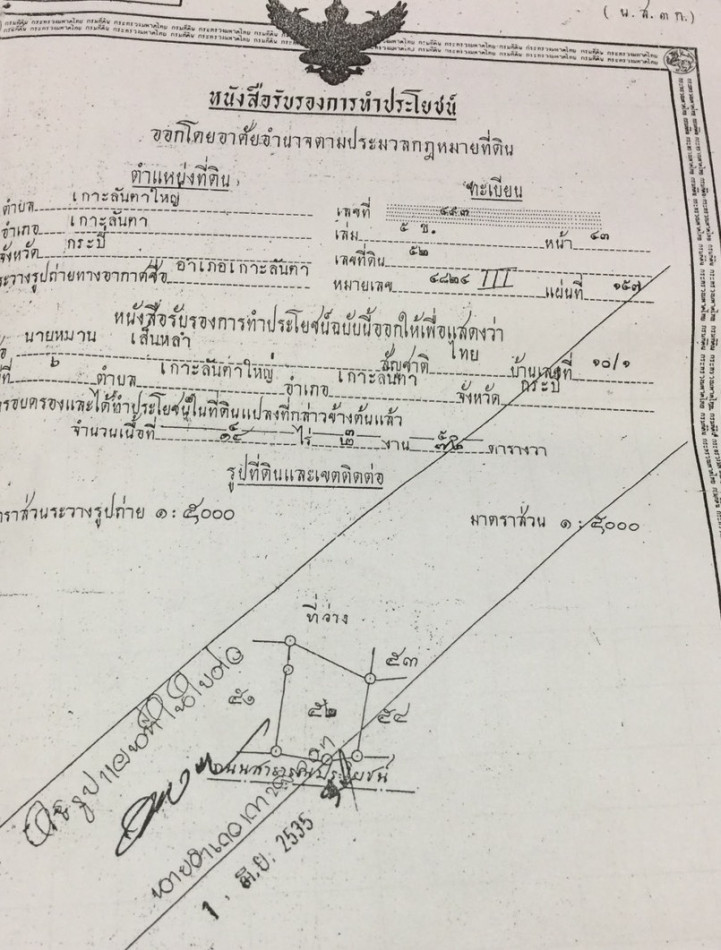 ( น.ส.๓ ก.)
กรมที่ดิน กระทรวงมหาดไทย กรมที่ดิน กระทรวงมหาดไทย
หนังสือรับรองการทำประโยชน์
ออกโดยอาศัยอำนาจตามประมวลกฎหมายที่ดิน
ตำแหน่งที่ดิน
ทะเบียน
ตำบล เกาะลันตาใหญ่
เลขที่ ๔๙๓
อำเภอ เกาะลันตา
เล่ม ๕ ข. หน้า ๔๓
จังหวัด กระบี่
เลขที่ดิน ๕๒
ระวางรูปถ่ายทางอากาศชื่อ อำเภอเกาะลันตา
หมายเลข ๔๘๒๔ III แผ่นที่ ๑๕๗
หนังสือรับรองการทำประโยชน์ฉบับนี้ออกให้เพื่อแสดงว่า
นายหมาน เส็นหล้า สัญชาติ ไทย บ้านเลขที่ ๑๐/๑
ที่ ๖ ตำบล เกาะลันตาใหญ่ อำเภอ เกาะลันตา จังหวัด กระบี่
ครอบครองและได้ทำประโยชน์ในที่ดินแปลงที่กล่าวข้างต้นแล้ว
จำนวนเนื้อที่ ๑๔ ไร่ ๒ งาน ตารางวา
รูปที่ดินและเขตติดต่อ
มาตราส่วนระวางรูปถ่าย ๑ : ๕๐๐๐
มาตราส่วน ๑ : ๕๐๐๐
ที่ว่าง
๕๓
๕๑
๕๒
๕๔
ถนนสาธารณประโยชน์
1 . มิ.ย. 2535